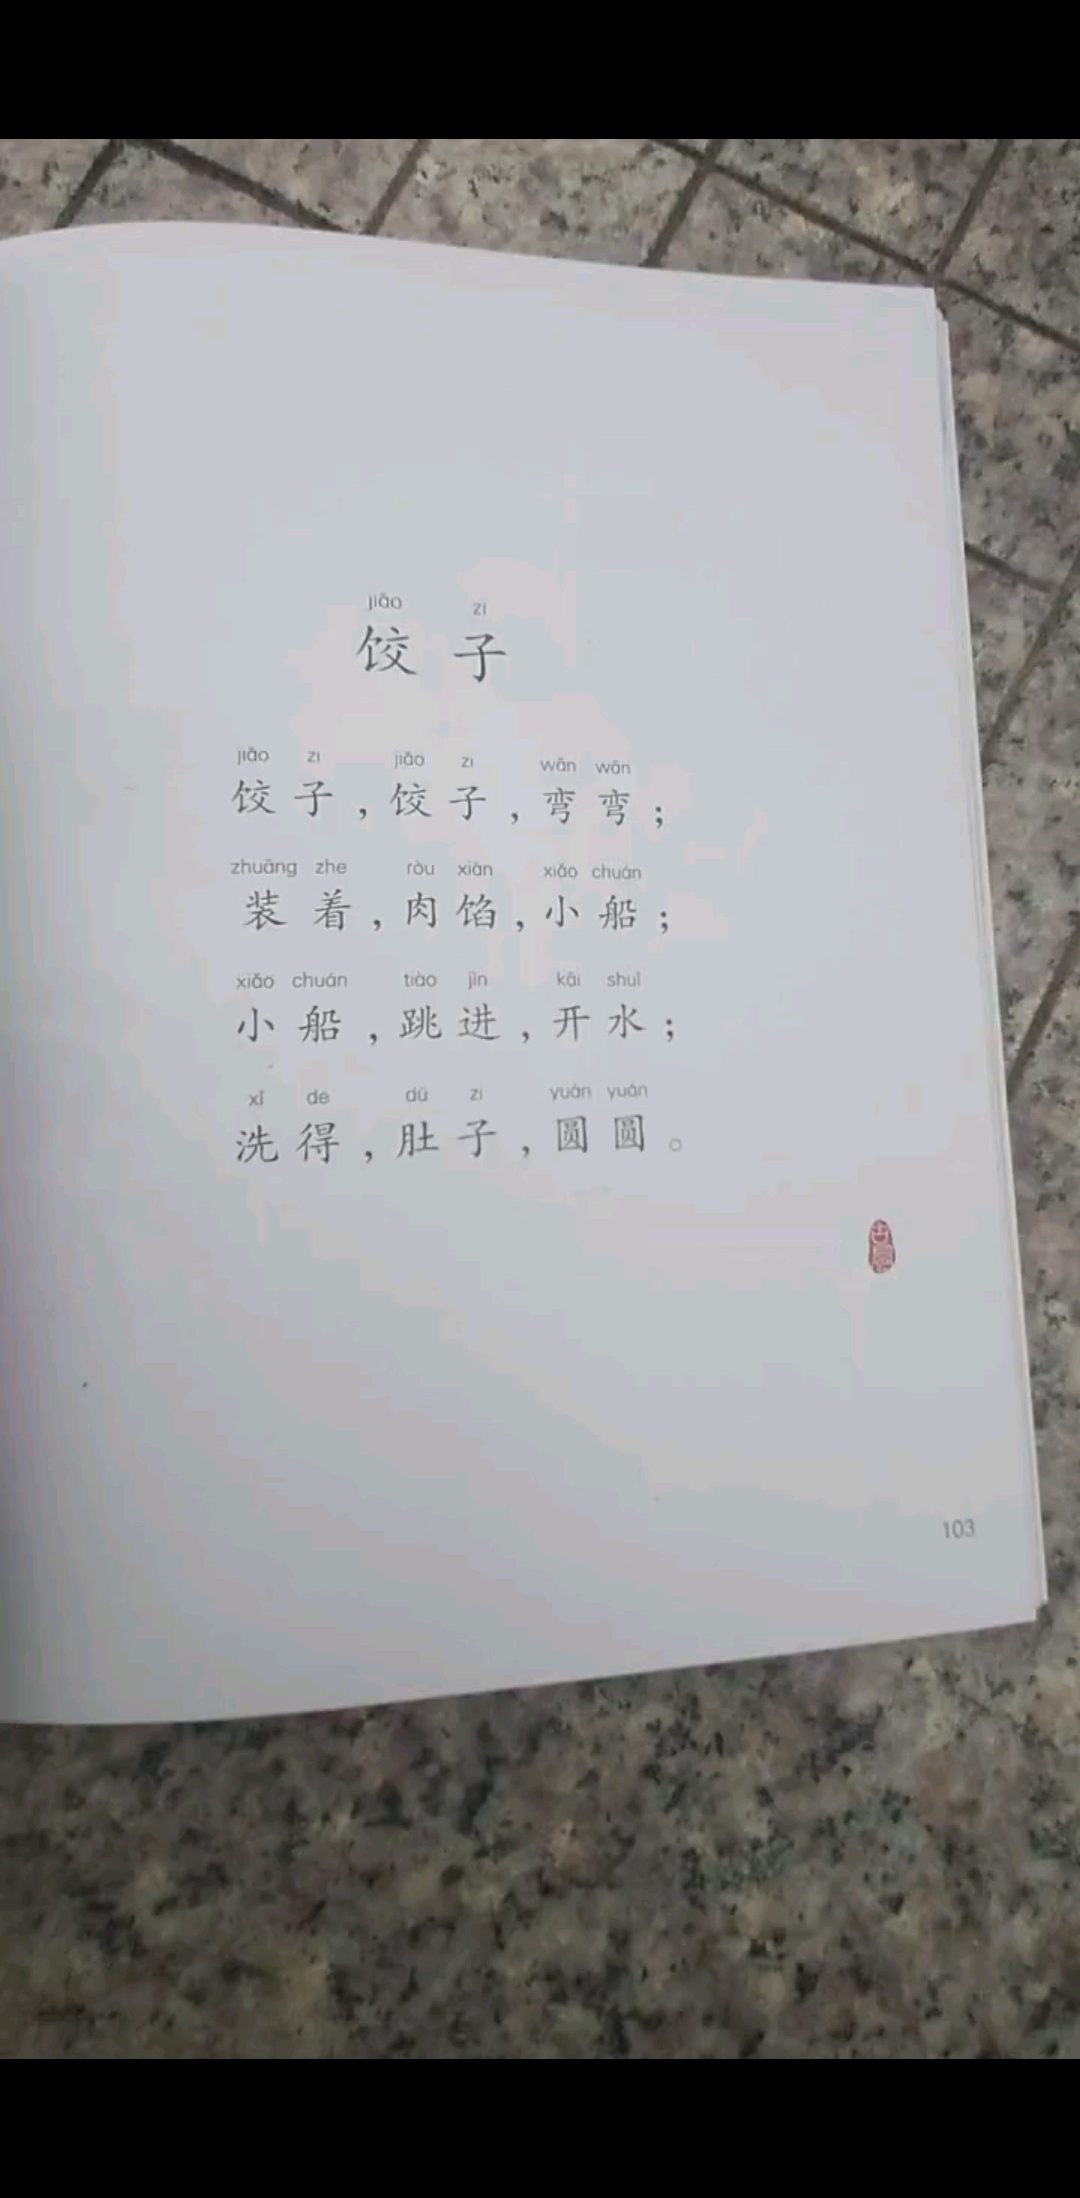 jiǎo zi
饺子
jiǎo zi jiǎo zi wān wān
饺子，饺子，弯弯；
zhuāng zhe ròu xiàn xiǎo chuán
装着，肉馅，小船；
xiǎo chuán tiào jìn kāi shuǐ
小船，跳进，开水；
xǐ de dù zi yuán yuán
洗得，肚子，圆圆。
103